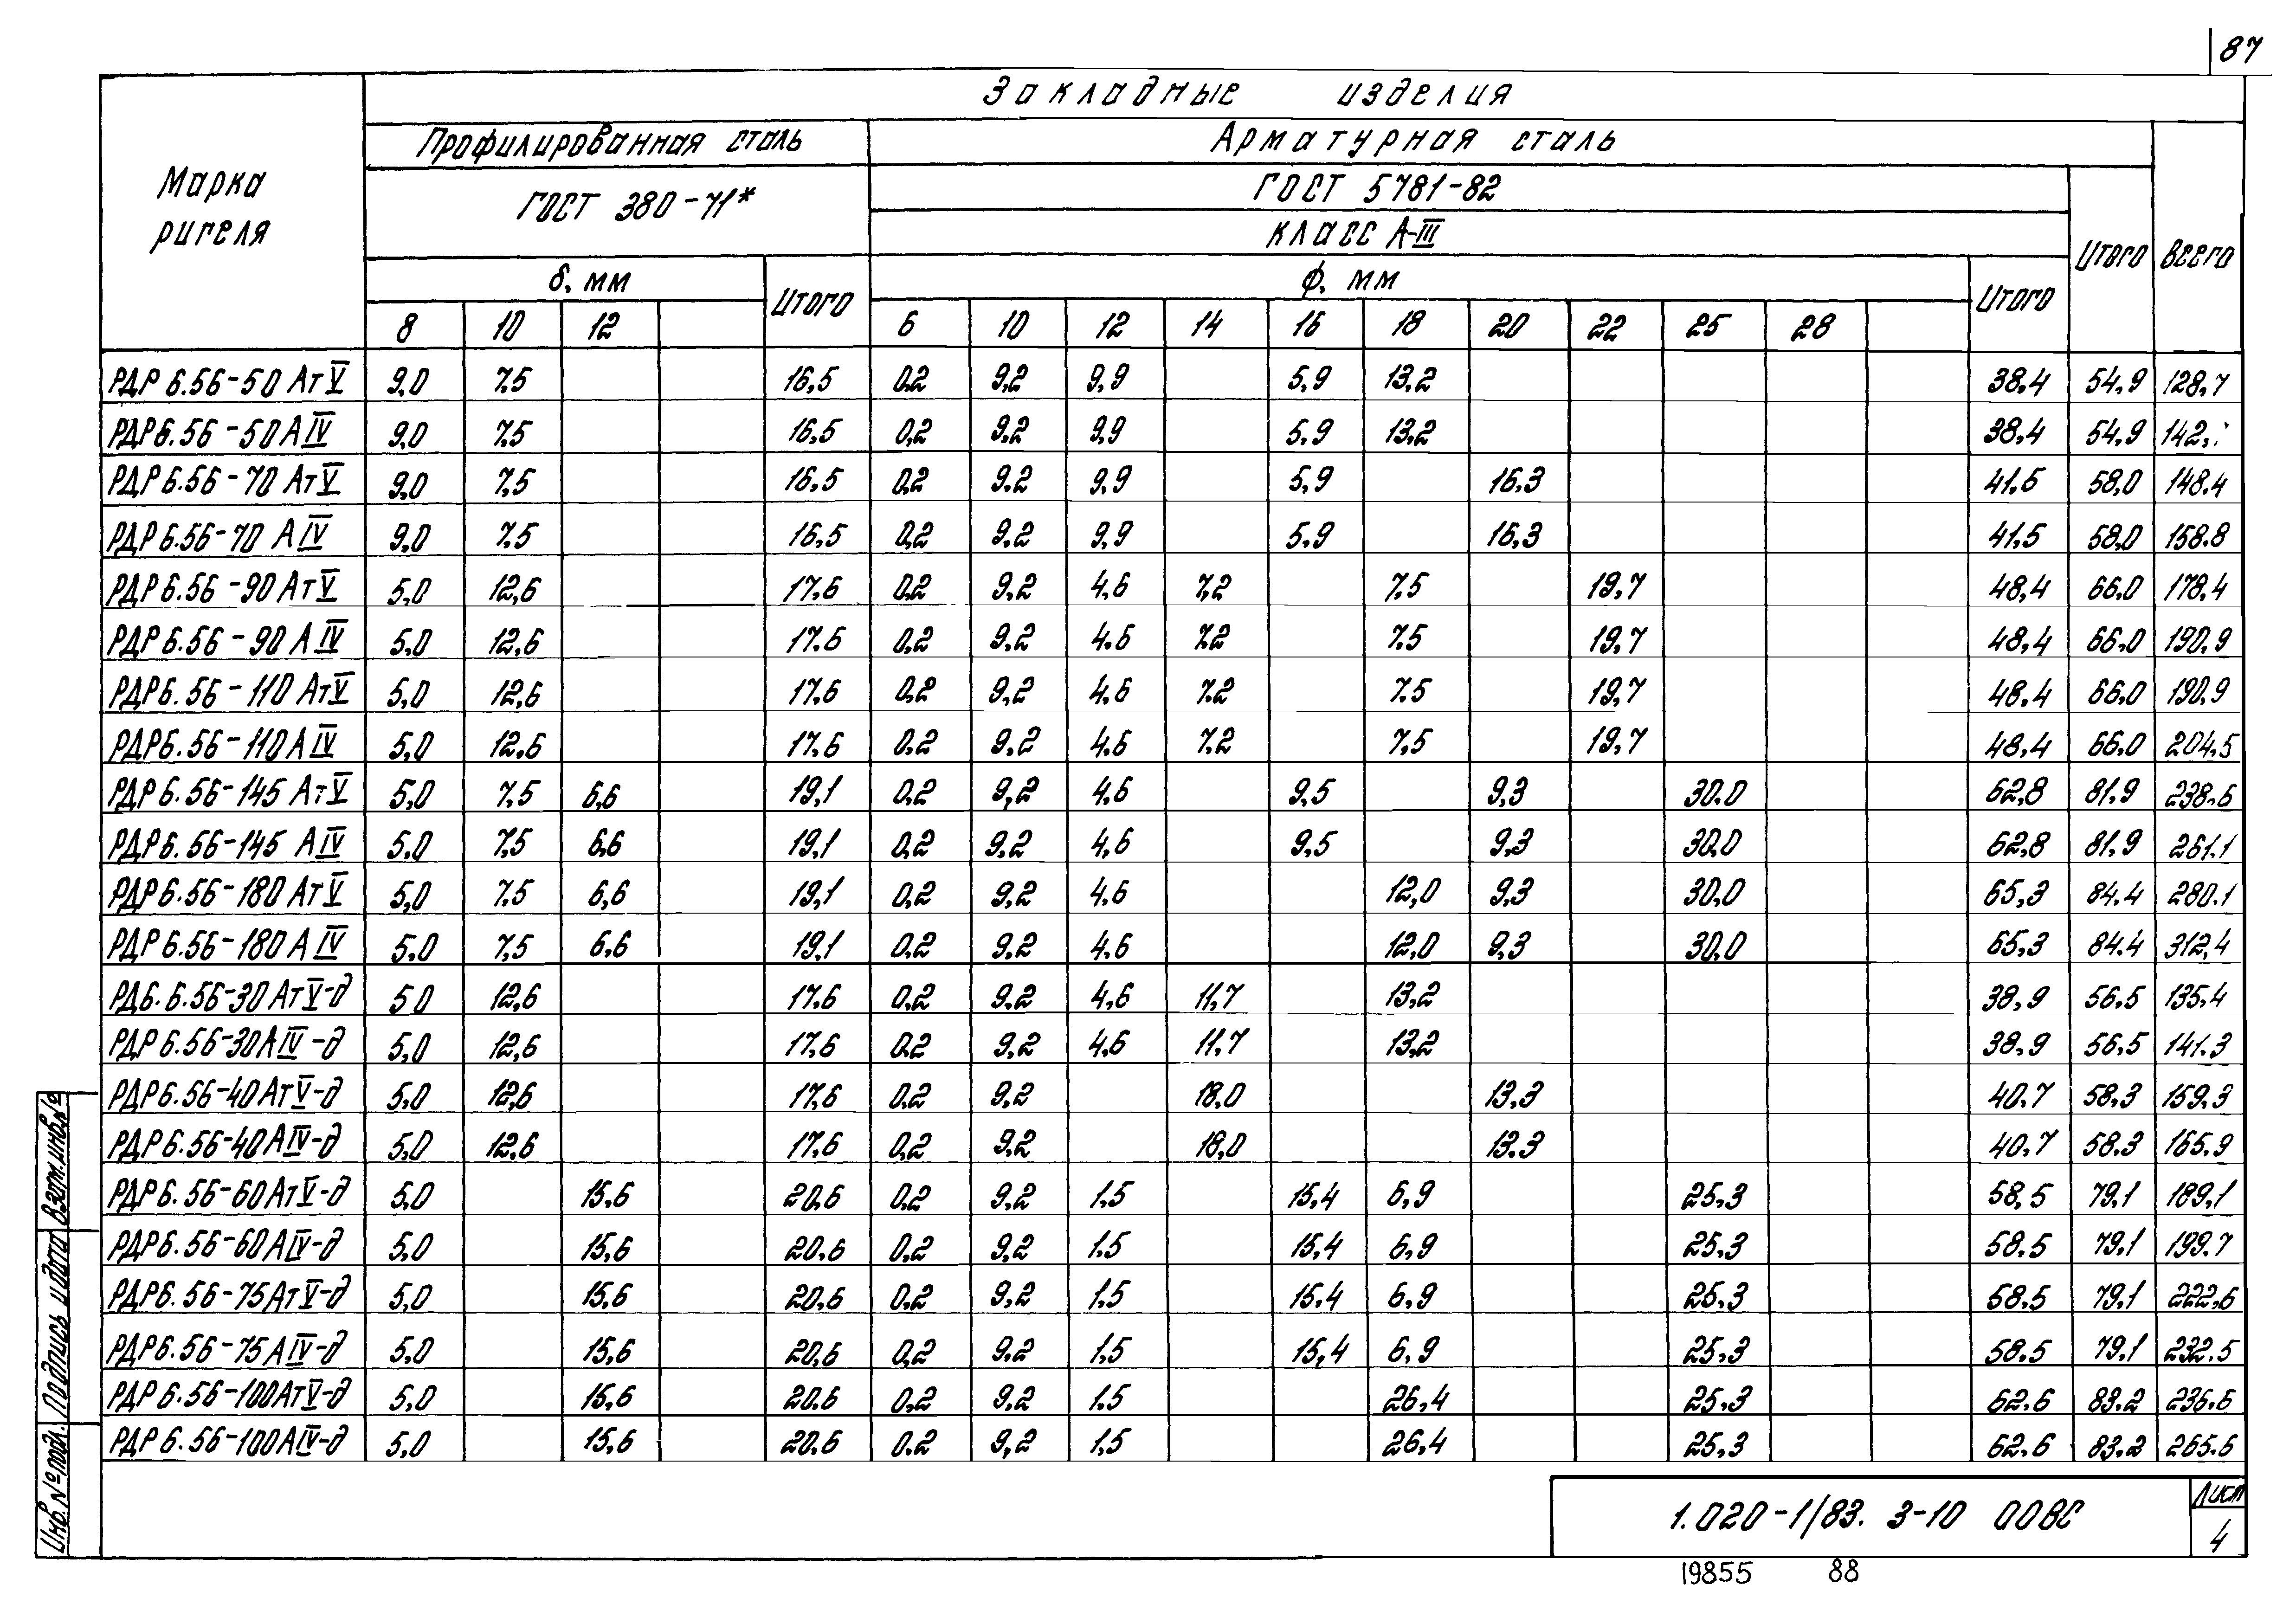 87
Закладные изделия
Профилированная сталь Арматурная сталь
Марка ригеля ГОСТ 380-71* ГОСТ 5781-82
класс А-III
δ, мм Итого ϕ, мм Итого Итого Всего
8 10 12 6 10 12 14 16 18 20 22 25 28
РДР 6.56-50 АтV 9,0 7,5 16,5 0,2 9,2 9,9 5,9 13,2 38,4 54,9 128,7
РДР 6.56-50 АIV 9,0 7,5 16,5 0,2 9,2 9,9 5,9 13,2 38,4 54,9
РДР 6.56-70 АтV 9,0 7,5 16,5 0,2 9.2 9.9 5,9 16.3 41.5 58,0 148.4
РДР 6.56-70 АIV 9,0 7,5 16,5 0,2 9.2 9,9 5.9 16,3 41,5 58,0 158.8
РДР 6.56-90 АтV 5,0 12,6 17,6 0,2 9,2 4,6 7,2 7,5 19,7 48,4 66,0 178,4
РДР 6.56-90 АIV 5,0 12,6 17.6 0,2 9,2 4.6 7.2 7.5 19,7 48,4 66.0 190,9
РДР 6.56-110 АтV 5,0 12,6 17.6 0,2 9,2 4.6 7.2 7.5 19,7 48.4 66.0 190,9
РДР 6.56-110 АIV 5,0 12.6 17,6 0.2 9,2 4.6 7.2 7,5 19,7 48,4 66.0 204,5
РДР 6.56-145 АтV 5,0 7,5 6,6 19,1 0,2 9,2 4,6 9,5 9,3 30.0 62,8 81,9 238.6
РДР 6.56-145 АIV 5.0 7,5 6,6 19,1 0,2 9.2 4,6 9,5 9,3 30,0 62,8 81,9 261.1
РДР 6.56-180 АтV 5,0 7,5 6,6 19,1 0,2 9,2 4.6 12,0 9,3 30,0 65,3 84.4 280.1
РДР 6.56-180 АIV 5.0 7,5 6.6 19.1 0.2 9,2 4.6 12,0 9,3 30,0 65,3 84.4 312,4
РДб. 6.56-30 АтV-д 5 0 12,6 17.6 0,2 9.2 4,6 11,7 13,2 38,9 56.5 135,4
РДР 6.56-30АIV-д 5,0 12,6 17,6 0.2 9,2 4,6 11.7 13,2 38,9 56,5 141.3
РДР 6.56-40АтV-д 5,0 12,6 17,6 0.2 9,2 18,0 13,3 40.7 58,3 159,3
РДР 6.56-40АIV-д 5,0 12,6 17,6 0,2 9,2 18,0 13.3 40,7 58.3 165,9
РДР 6.56-60АтV-д 5,0 15,6 20,6 0,2 9,2 1.5 15,4 6,9 25,3 58,5 79,1 189,1
РДР 6.56-60АIV-д 5,0 15,6 20,6 0,2 9,2 1.5 15,4 6,9 25,3 58.5 79,1 199.7
РДР 6.56-75АтV-д 5,0 15,6 20,6 0,2 9,2 1,5 15.4 6,9 25,3 58.5 79,1 222,6
РДР 6.56-75АIV-д 5,0 15,6 20,6 0,2 9,2 1,5 15,4 6,9 25,3 58.5 79.1 232.5
РДР 6.56-100АтV-д 5,0 15,6 20.6 0,2 9,2 1.5 26,4 25,3 62.6 83.2 236.6
РДР 6.56-100АIV-д 5,0 15,6 20.6 0.2 9,2 1,5 26,4 25,3 62.6 83.2 265.6
Взам.инв.№
Подпись и дата
Инв.№подл.
1.020-1/83. 3-10 00ВС
Лист
4
19855 88